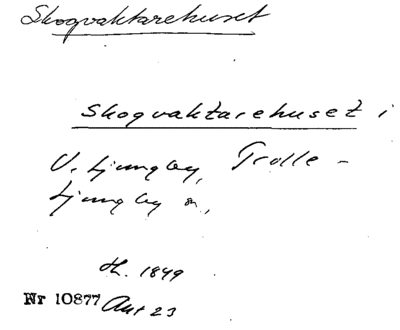 Skogvaktarehuset
Skogvaktarehuset i
V. Ljungby, Trolle-
Ljungby s.,
H. 1849
Nr 10877 Aut 23